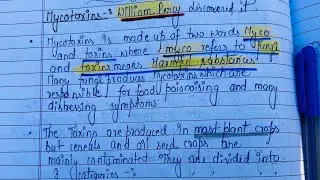 Mycotoxins:- William Percy discovered it
• Mycotoxins is made up of two words Myco
and toxins where (myco refers to fungi
and toxins means Harmful substances)
Many fungi produces Mycotoxins which are
responsible for food poisoning and many
distressing symptoms.
• The toxins are produced in most plant crops
but cereals and oil seed crops are
mainly contaminated. They are divided into
3 Categories -: